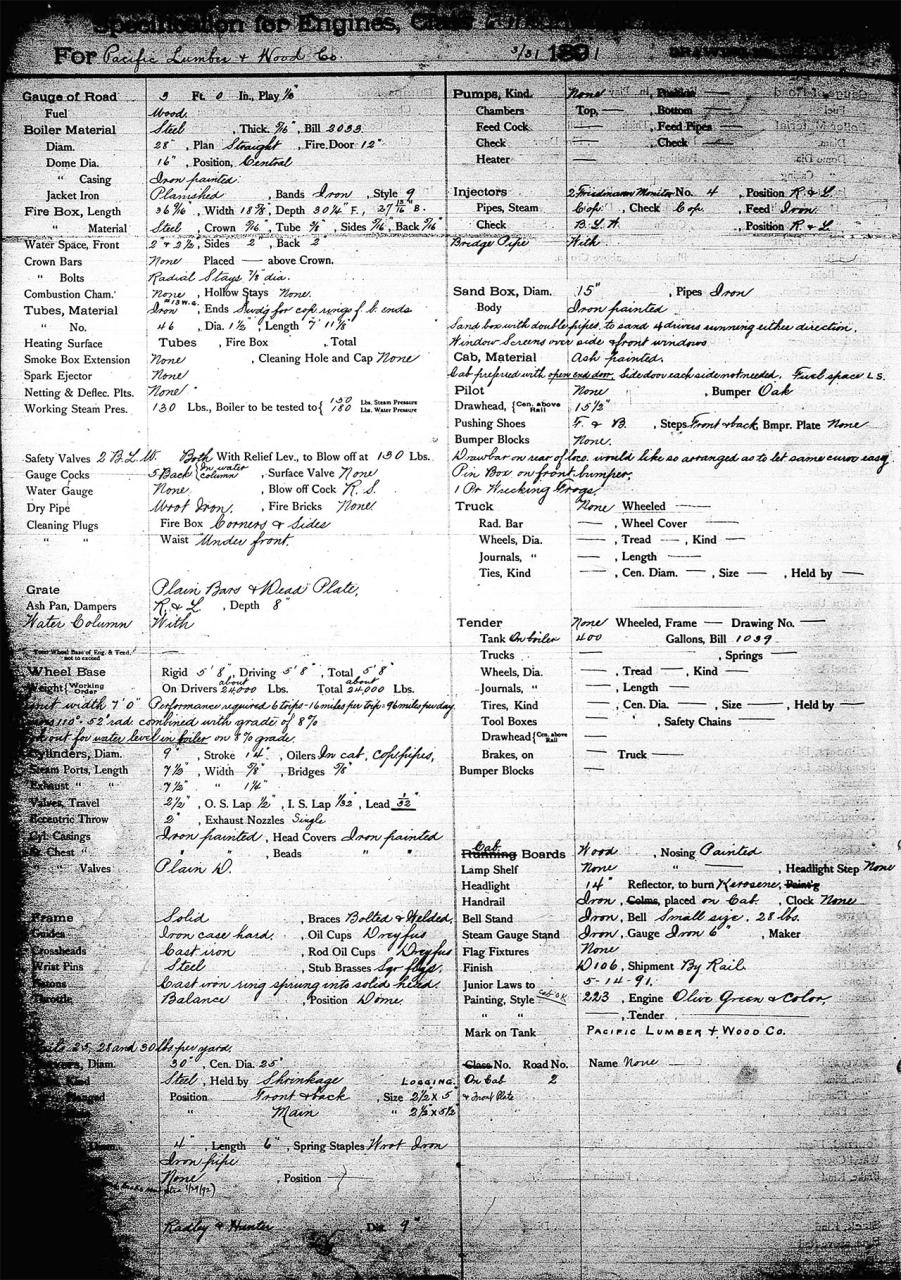 Specification for Engines, Class
For Pacific Lumber & Wood Co. 3/31 1891
Gauge of Road 3 Ft. 0 In., Play
Fuel Wood.
Boiler Material Steel , Thick. 5/16" , Bill 2033.
Diam. 28" , Plan Straight , Fire Door 12"
Dome Dia. 16" , Position, Central
" Casing Iron painted.
Jacket Iron Planished , Bands Iron , Style 9
Fire Box, Length 36 , Width 18 7/8 , Depth 30 1/4" F. , B.
" Material Steel, Crown 5/16 , Tube , Sides 5/16 , Back 5/16
Water Space, Front 2 & 2 1/2 , Sides 2" , Back 2
Crown Bars None Placed — above Crown.
" Bolts Radial Stays 7/8 dia.
Combustion Cham. None , Hollow Stays None.
Tubes, Material Iron #13 W.G. , Ends Swdg for cop. rings f. b. ends
" No. 46 , Dia. 1 1/2" , Length 7' 11 1/8"
Heating Surface Tubes , Fire Box , Total
Smoke Box Extension None , Cleaning Hole and Cap None
Spark Ejector None
Netting & Deflec. Plts. None
Working Steam Pres. 130 Lbs., Boiler to be tested to { 130 Lbs. Steam Pressure
180 Lbs. Water Pressure
Safety Valves 2 B.L.W. Both With Relief Lev., to Blow off at 130 Lbs.
Gauge Cocks 5 Back { On water column , Surface Valve None
Water Gauge None , Blow off Cock R. S.
Dry Pipe Wrot Iron. , Fire Bricks None
Cleaning Plugs Fire Box Corners & Sides
" " Waist Under front.
Grate Plain Bars & Dead Plate.
Ash Pan, Dampers R. & L , Depth 8"
Water Column With
Total Wheel Base of Eng. & Tend. not to exceed —
Wheel Base Rigid 5' 8" , Driving 5' 8" , Total 5' 8"
Weight { Working Order On Drivers about 24,000 Lbs. Total about 24,000 Lbs.
width 7' 0" Performance required 6 trips - 16 miles per trip - 96 miles per day.
110° - 52' rad. combined with grade of 8%
out for water level in boiler on 8% grade.
Cylinders, Diam. 9" , Stroke 14" , Oilers In cab, Cop. pipes,
Steam Ports, Length 7 1/2 , Width 5/8 , Bridges 5/8"
Exhaust " " 7 1/2 " 1 1/4"
Valves, Travel 2 1/2" , O. S. Lap 1/2 , I. S. Lap 1/32 , Lead 1/32"
Eccentric Throw 2" , Exhaust Nozzles Single
Cyl. Casings Iron painted , Head Covers Iron painted
St. Chest " " " , Beads " "
" Valves Plain D.
Frame Solid , Braces Bolted & Welded.
Guides Iron case hard. , Oil Cups Dreyfus
Crossheads Cast iron , Rod Oil Cups Dreyfus
Wrist Pins Steel , Stub Brasses Sqr flgs.
Pistons Cast iron ring sprung into solid head.
Throttle Balance , Position Dome.
Rails 25, 28 and 30 lbs per yard.
Drivers, Diam. 30" , Cen. Dia. 25"
Kind Steel , Held by Shrinkage LOGGING.
Flanged Position Front & back , Size 2 1/2 x 5
" Main " 2 1/2 x 5 1/2"
Diam. 4" , Length 6" , Spring Staples Wrot Iron
Iron pipe
None , Position —
Radley & Hunter Dia 9"
Pumps, Kind. None , Position —
Chambers Top, — , Bottom —
Feed Cock — , Feed Pipes —
Check — , Check —
Heater —
Injectors 2 Friedmann Monitor No. 4 , Position R & L.
Pipes, Steam Cop. , Check Cop. , Feed Iron.
Check B. L. W. , Position R & L.
Bridge Pipe With
Sand Box, Diam. 15" , Pipes Iron
Body Iron painted
Sand box with double pipes, to sand 4 drivers running either direction.
Window Screens over side & front windows
Cab, Material Ash painted.
Cab preferred with open end door. Side door each side not needed. Fuel space L S.
Pilot None , Bumper Oak
Drawhead, { Cen. above Rail 15 1/2"
Pushing Shoes F. & B. , Steps Front & back, Bmpr. Plate None
Bumper Blocks None.
Drawbar on rear of loco. would like so arranged as to let same curve easy
Pin Box on front bumper.
1 Pr Wrecking Frogs.
Truck None Wheeled —
Rad. Bar — , Wheel Cover —
Wheels, Dia. — , Tread — , Kind —
Journals, " — , Length —
Ties, Kind — , Cen. Diam. — , Size — , Held by —
Tender None Wheeled, Frame — Drawing No. —
Tank On boiler 400 Gallons, Bill 1039
Trucks — , Springs —
Wheels, Dia. — , Tread — , Kind —
Journals, " — , Length
Tires, Kind — , Cen. Dia. — , Size — , Held by —
Tool Boxes — , Safety Chains —
Drawhead { Cen. above Rail —
Brakes, on — Truck —
Bumper Blocks —
Cab
Running Boards Wood , Nosing Painted
Lamp Shelf None " — , Headlight Step None
Headlight 14" Reflector, to burn Kerosene, Paint'g
Handrail Iron , Colms, placed on Cab. , Clock None
Bell Stand Iron , Bell Small size. 28 lbs.
Steam Gauge Stand Iron , Gauge Iron 6" , Maker
Flag Fixtures None
Finish D106 , Shipment By Rail.
Junior Laws to 5-14-91.
Painting, Style 223 , Engine Olive Green & Color
" " — , Tender —
Mark on Tank PACIFIC LUMBER + WOOD CO.
Class No. Road No. Name None
On Cab 2
& Front Plate